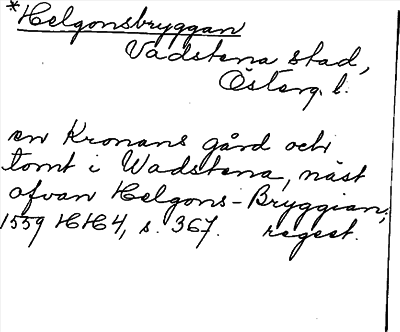 *Helgonsbryggan
Vadstena stad,
Österg. l.
en Kronans gård och
tomt i Wadstena, näst
ofvan Helgons-Bryggian,
1559 HH4, s. 367. regest.